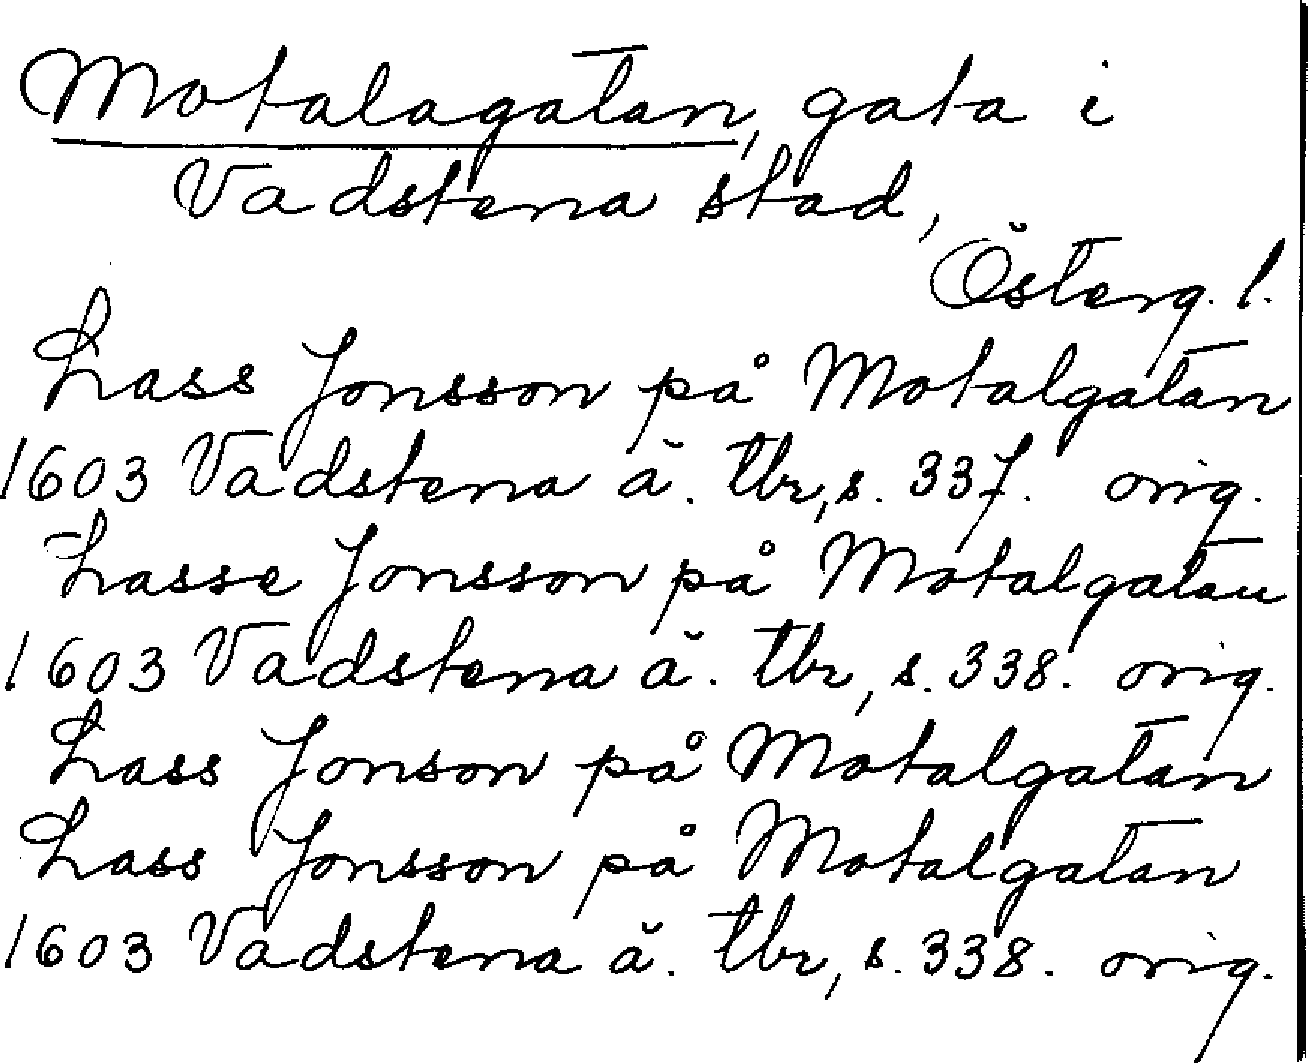 Motalagatan, gata i
Vadstena stad,
Österg. l.
Lass Jonsson på Motalgatan
1603 Vadstena ä. tbr, s. 337. orig.
Lasse Jonsson på Motalgatan
1603 Vadstena ä. tbr, s. 338. orig.
Lass Jonson på Motalgatan
Lass Jonsson på Motalgatan
1603 Vadstena ä. tbr, s. 338. orig.